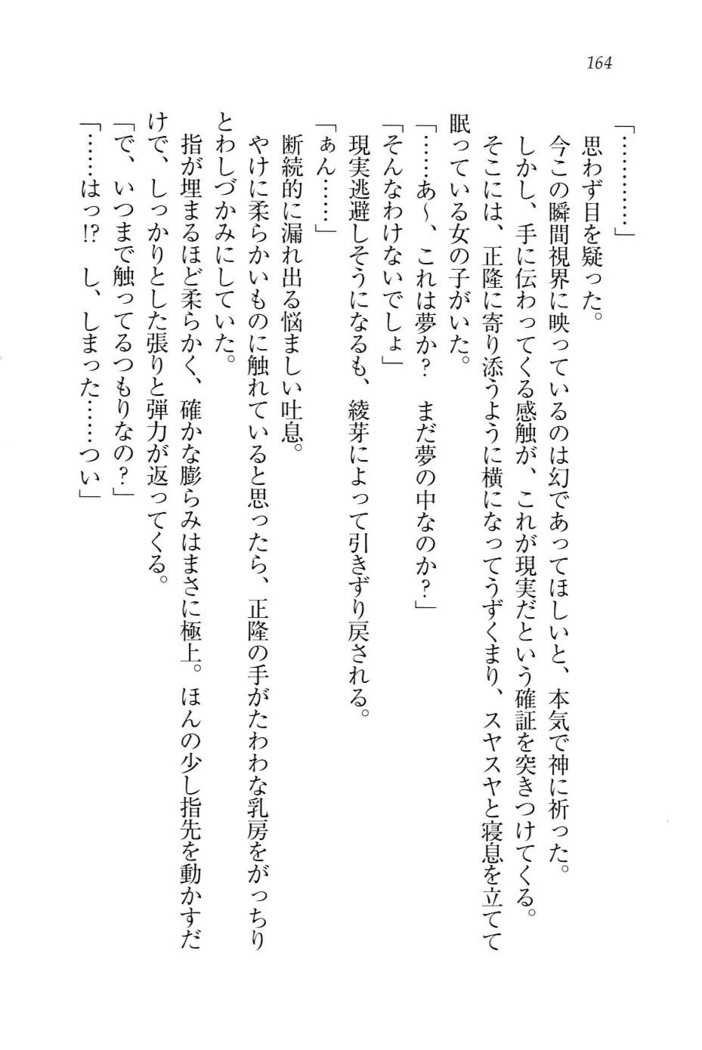 164
「…………」
思わず目を疑った。
今この瞬間視界に映っているのは幻であってほしいと、本気で神に祈った。
しかし、手に伝わってくる感触が、これが現実だという確証を突きつけてくる。
そこには、正隆に寄り添うように横になってうずくまり、スヤスヤと寝息を立てて
眠っている女の子がいた。
「……あ〜、これは夢か?　まだ夢の中なのか?」
「そんなわけないでしょ」
現実逃避しそうになるも、綾芽によって引きずり戻される。
「ぁん……」
断続的に漏れ出る悩ましい吐息。
やけに柔らかいものに触れていると思ったら、正隆の手がたわわな乳房をがっちり
とわしづかみにしていた。
指が埋まるほど柔らかく、確かな膨らみはまさに極上。ほんの少し指先を動かすだ
けで、しっかりとした張りと弾力が返ってくる。
「で、いつまで触ってるつもりなの?」
「……はっ!?　し、しまった……つい」